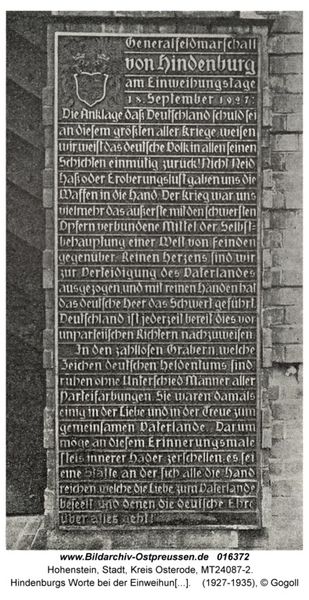 Generalfeldmarschall
von Hindenburg
am Einweihungstage
18. September 1927:
Die Anklage daß Deutschland schuld sei
an diesem größten aller Kriege, weisen
wir, weist das deutsche Volk in allen seinen
Schichten einmütig zurück! Nicht Neid
Haß oder Eroberungslust gaben uns die
Waffen in die Hand. Der Krieg war uns
vielmehr das äußerste, mit den schwersten
Opfern verbundene Mittel der Selbst-
behauptung einer Welt von Feinden
gegenüber. Reinen Herzens sind wir
zur Verteidigung des Vaterlandes
ausgezogen, und mit reinen Händen hat
das deutsche Heer das Schwert geführt.
Deutschland ist jederzeit bereit, dies vor
unparteiischen Richtern nachzuweisen.
In den zahllosen Gräbern, welche
Zeichen deutschen Heldentums sind
ruhen ohne Unterschied Männer aller
Parteifärbungen. Sie waren damals
einig in der Liebe und in der Treue zum
gemeinsamen Vaterlande. Darum
möge an diesem Erinnerungsmale
stets innerer Hader zerschellen, es sei
eine Stätte an der sich alle die Hand
reichen, welche die Liebe zum Vaterlande
beseelt und denen die deutsche Ehre
über alles geht!
www.Bildarchiv-Ostpreussen.de 016372
Hohenstein, Stadt, Kreis Osterode, MT24087-2.
Hindenburgs Worte bei der Einweihun[...]. (1927-1935), © Gogoll